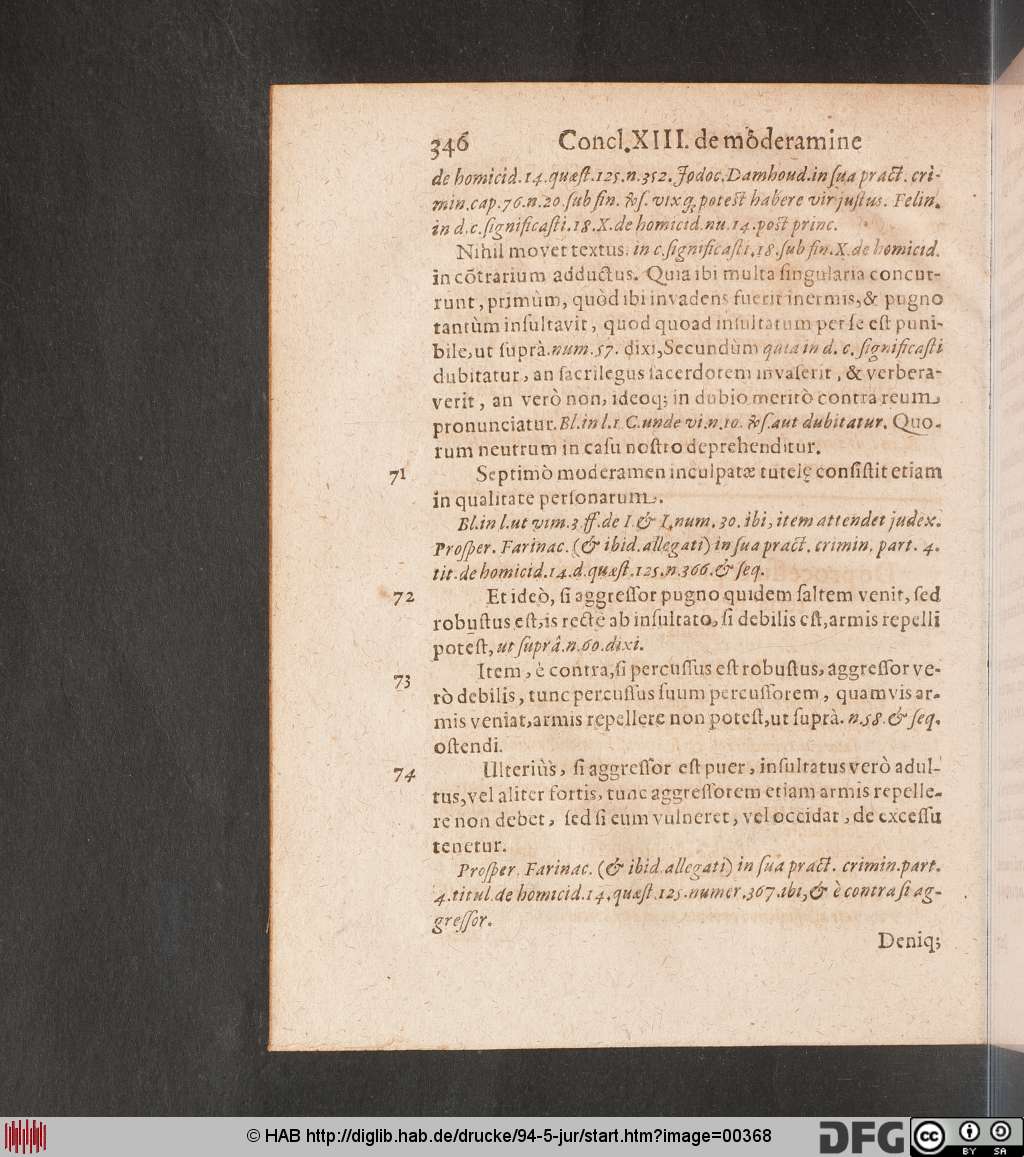 346 Concl. XIII. de moderamine
de homicid. 14. quæst. 125. n. 352. Jodoc. Damhoud. in sua pract. cri-
min. cap. 76. n. 20. sub fin. & s. vix q; potest habere vir justus. Felin.
in d. c. significasti. 18. X. de homicid. nu. 14. post princ.
Nihil movet textus. in c. significasti. 18. sub fin. X. de homicid.
in cõtrarium adductus. Quia ibi multa singularia concur-
runt, primùm, quòd ibi invadens fuerit inermis, & pugno
tantùm insultavit, quod quoad insultatum per se est puni-
bile, ut suprà. num. 57. dixi, Secundùm quia in d. c. significasti
dubitatur, an sacrilegus sacerdotem invaserit, & verbera-
verit, an verò non, ideoq; in dubio meritò contra reum
pronunciatur. Bl. in l. 1. C. unde vi. n. 10. & s. aut dubitatur. Quo-
rum neutrum in casu nostro deprehenditur.
71 Septimò moderamen inculpatæ tutelę consistit etiam
in qualitate personarum.
Bl. in l. ut vim. 3. ff. de I. & I. num. 30. ibi, item attendet judex.
Prosper. Farinac. (& ibid. allegati) in sua pract. crimin. part. 4.
tit. de homicid. 14. d. quæst. 125. n. 366. & seq.
72 Et ideò, si aggressor pugno quidem saltem venit, sed
robustus est, is rectè ab insultato, si debilis est, armis repelli
potest, ut suprâ. n. 60. dixi.
73 Item, è contra, si percussus est robustus, aggressor ve-
rò debilis, tunc percussus suum percussorem, quamvis ar-
mis veniat, armis repellere non potest, ut suprà. n. 58. & seq.
ostendi.
74 Ulteriùs, si aggressor est puer, insultatus verò adul-
tus, vel aliter fortis, tunc aggressorem etiam armis repelle-
re non debet, sed si eum vulneret, vel occidat, de excessu
tenetur.
Prosper. Farinac. (& ibid. allegati) in sua pract. crimin. part.
4. titul. de homicid. 14. quæst. 125. numer. 367. ibi, & è contra si ag-
gressor.
Deniq;
© HAB http://diglib.hab.de/drucke/94-5-jur/start.htm?image=00368
DFG cc BY SA